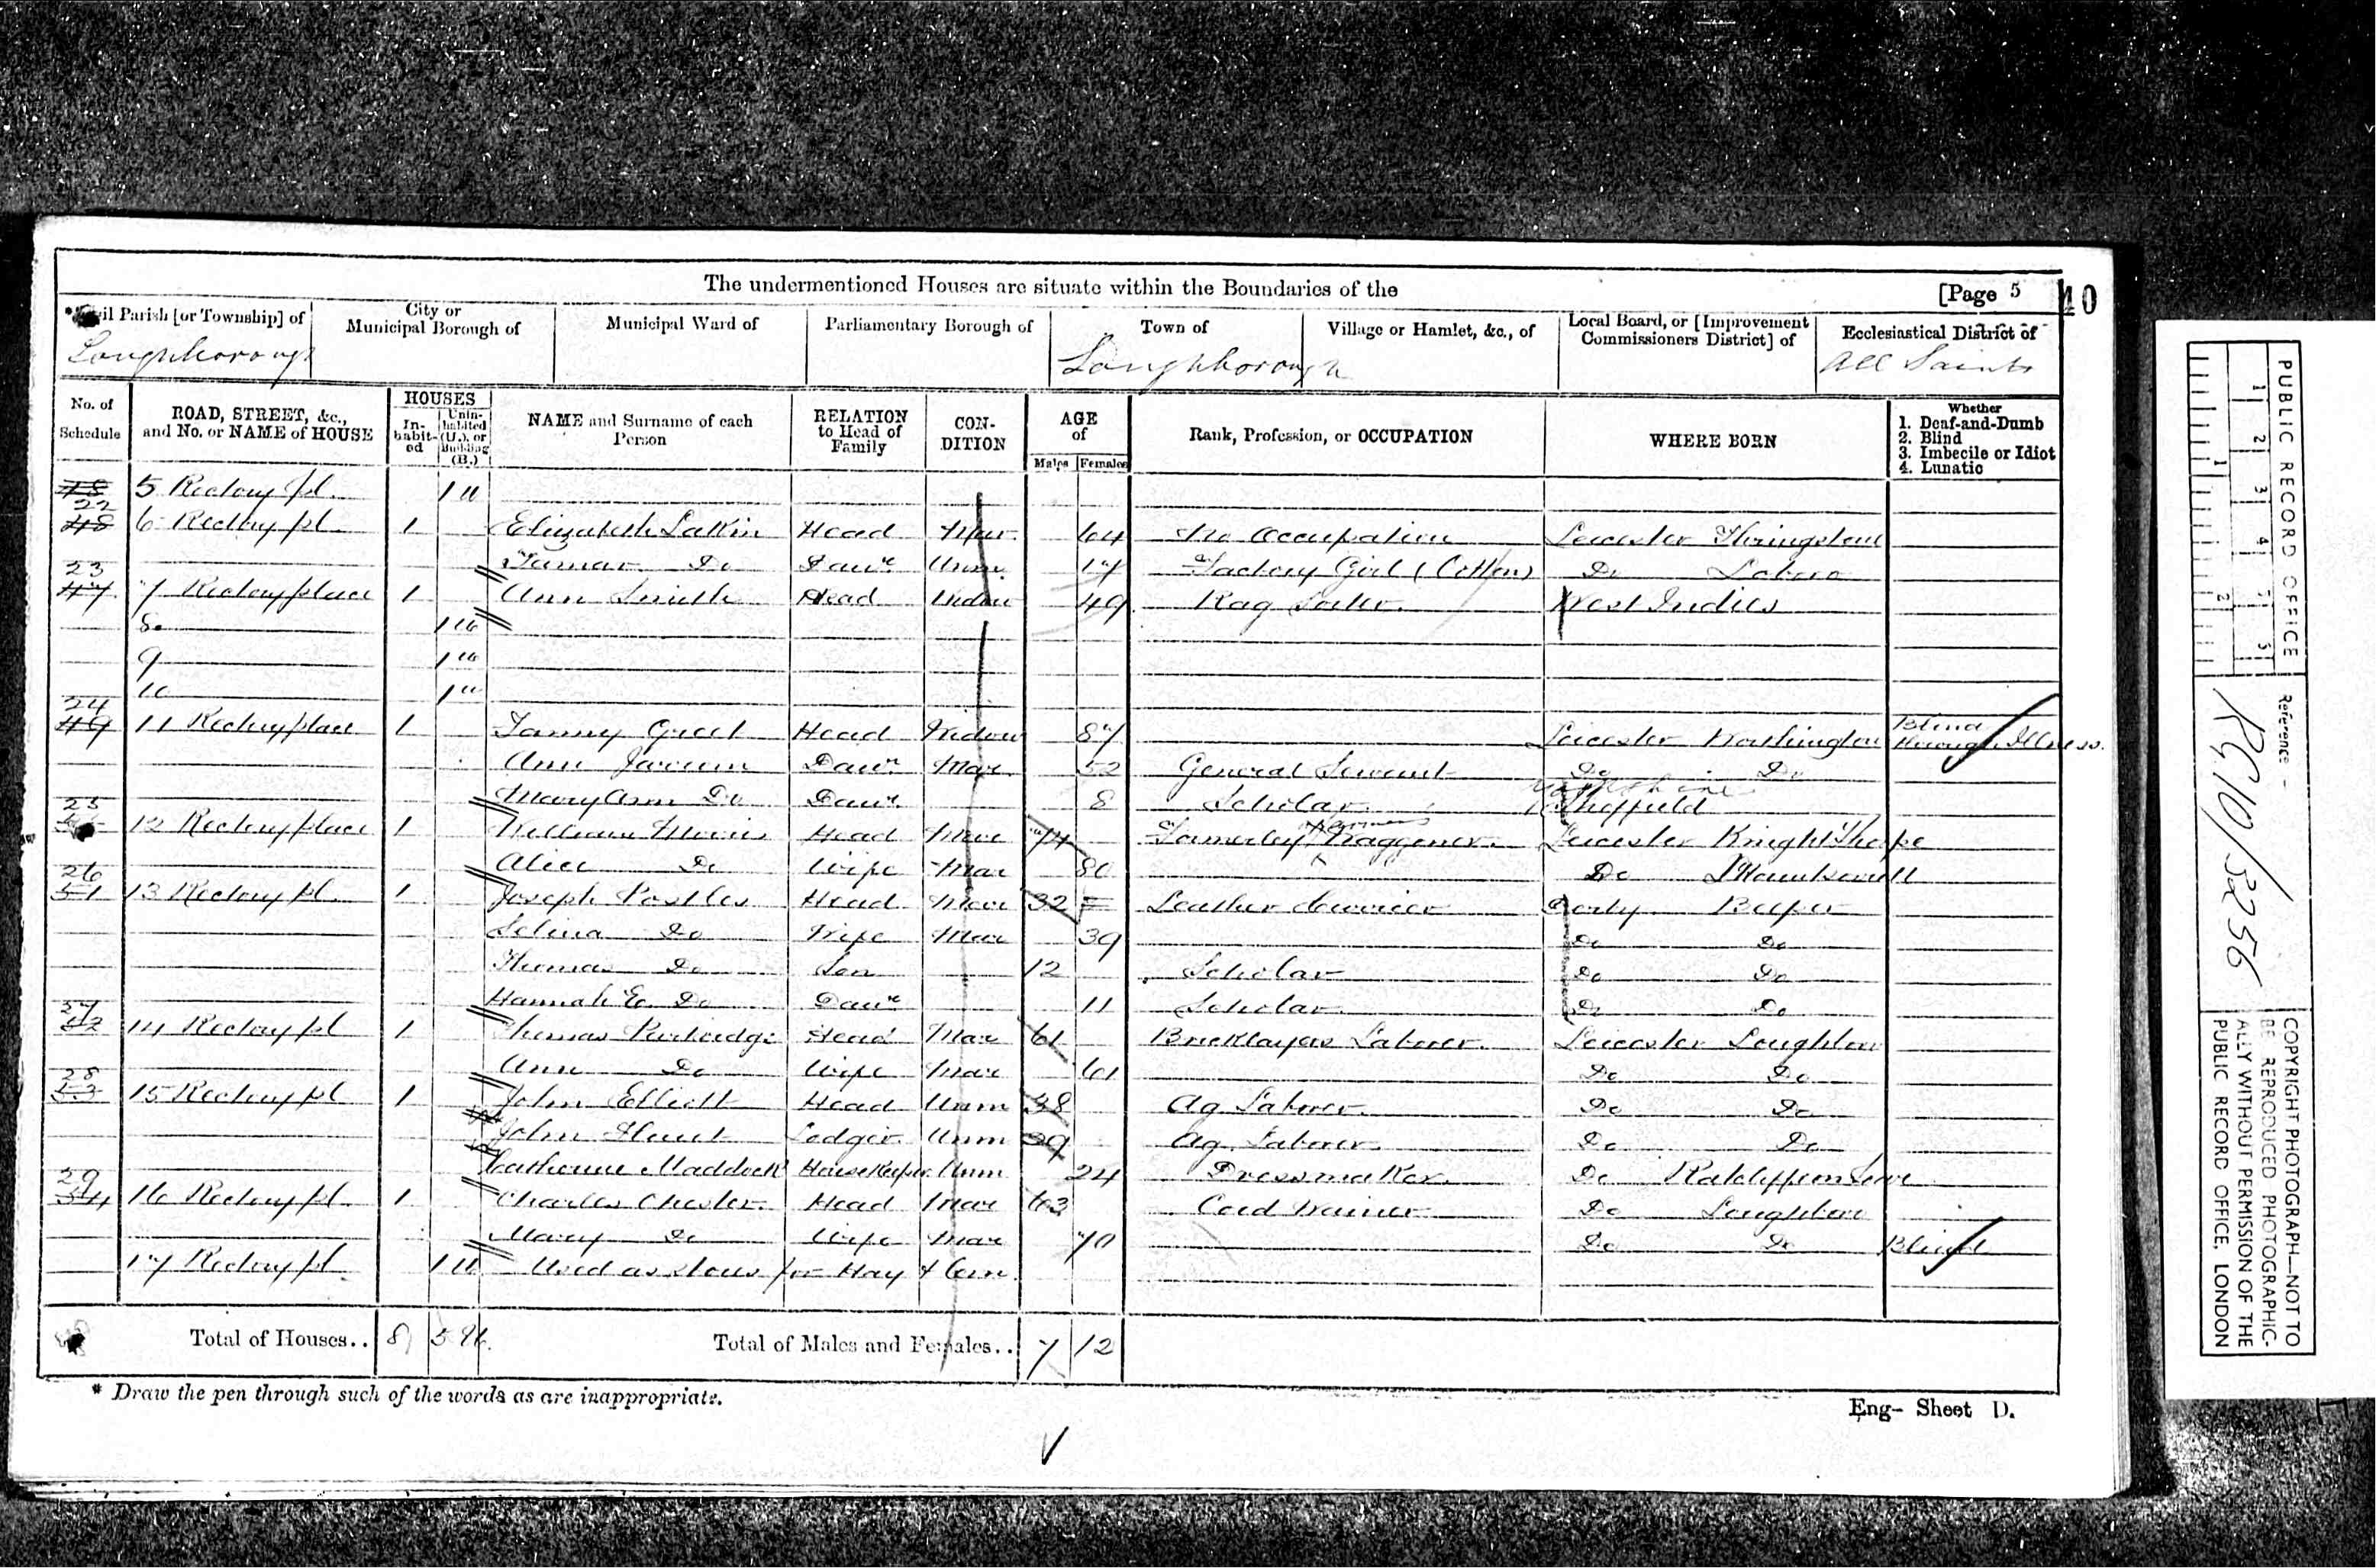 The undermentioned Houses are situate within the Boundaries of the [Page 5 40
Civil Parish [or Township] of City or Municipal Borough of Municipal Ward of Parliamentary Borough of Town of Village or Hamlet, &c., of Local Board, or [Improvement Commissioners District] of Ecclesiastical District of
Loughborough Loughborough All Saints
No. of Schedule ROAD, STREET, &c., and No. or NAME of HOUSE HOUSES Inhabited Uninhabited (U.), or Building (B.) NAME and Surname of each Person RELATION to Head of Family CONDITION AGE of Males Females Rank, Profession, or OCCUPATION WHERE BORN Whether 1. Deaf-and-Dumb 2. Blind 3. Imbecile or Idiot 4. Lunatic
5 Rectory pl. 1 u
22 48 6 Rectory pl. 1 Elizabeth Lakin Head Mar 64 No Occupation Leicester
Do Daur. Unm. 17 Factory Girl (Cotton) Do Loboro
23 47 7 Rectory place 1 Ann Smith Head Widow 49 Rag Sorter. West Indies
8 1 u
9 1 u
10 1 u
24 49 11 Rectory place 1 Fanny Head Widow 87 Leicester Blind through Illness.
Ann Daur. Mar. 52 General Servant Do Do
Mary Ann Do Daur. 8 Scholar. Yorkshire Sheffield
25 12 Rectory place 1 William Head Mar 74 Waggoner. Leicester Knight Thorpe
Alice Do Wife Mar 80 Do
26 51 13 Rectory pl. 1 Joseph Postles Head Mar 32 Leather Currier Derby Belper
Selina Do Wife Mar 39 Do Do
Thomas Do Son 12 Scholar Do Do
Hannah E. Do Daur. 11 Scholar. Do Do
27 52 14 Rectory pl 1 Thomas Head Mar 61 Bricklayers Laborer. Leicester Loughboro
Ann Do Wife Mar 61 Do Do
28 53 15 Rectory pl 1 John Elliott Head Unm 38 Ag Laborer. Do Do
John Lodger. Unm 39 Ag. Laborer. Do Do
Catherine Maddock Housekeeper. Unm 24 Dressmaker. Do
29 54 16 Rectory pl. 1 Charles Chester. Head Mar 63 Do Loughboro
Mary Do Wife Mar 70 Do Do Blind
17 Rectory pl. 1 U Used as stores for Hay & Corn.
Total of Houses.. 8 5 Total of Males and Females.. 7 12
* Draw the pen through such of the words as are inappropriate.
Eng- Sheet D.
PUBLIC RECORD OFFICE
1 2 3 4 5
1 2
Reference -
RG 10/3256
COPYRIGHT PHOTOGRAPH—NOT TO
BE REPRODUCED PHOTOGRAPHIC-
ALLY WITHOUT PERMISSION OF THE
PUBLIC RECORD OFFICE, LONDON